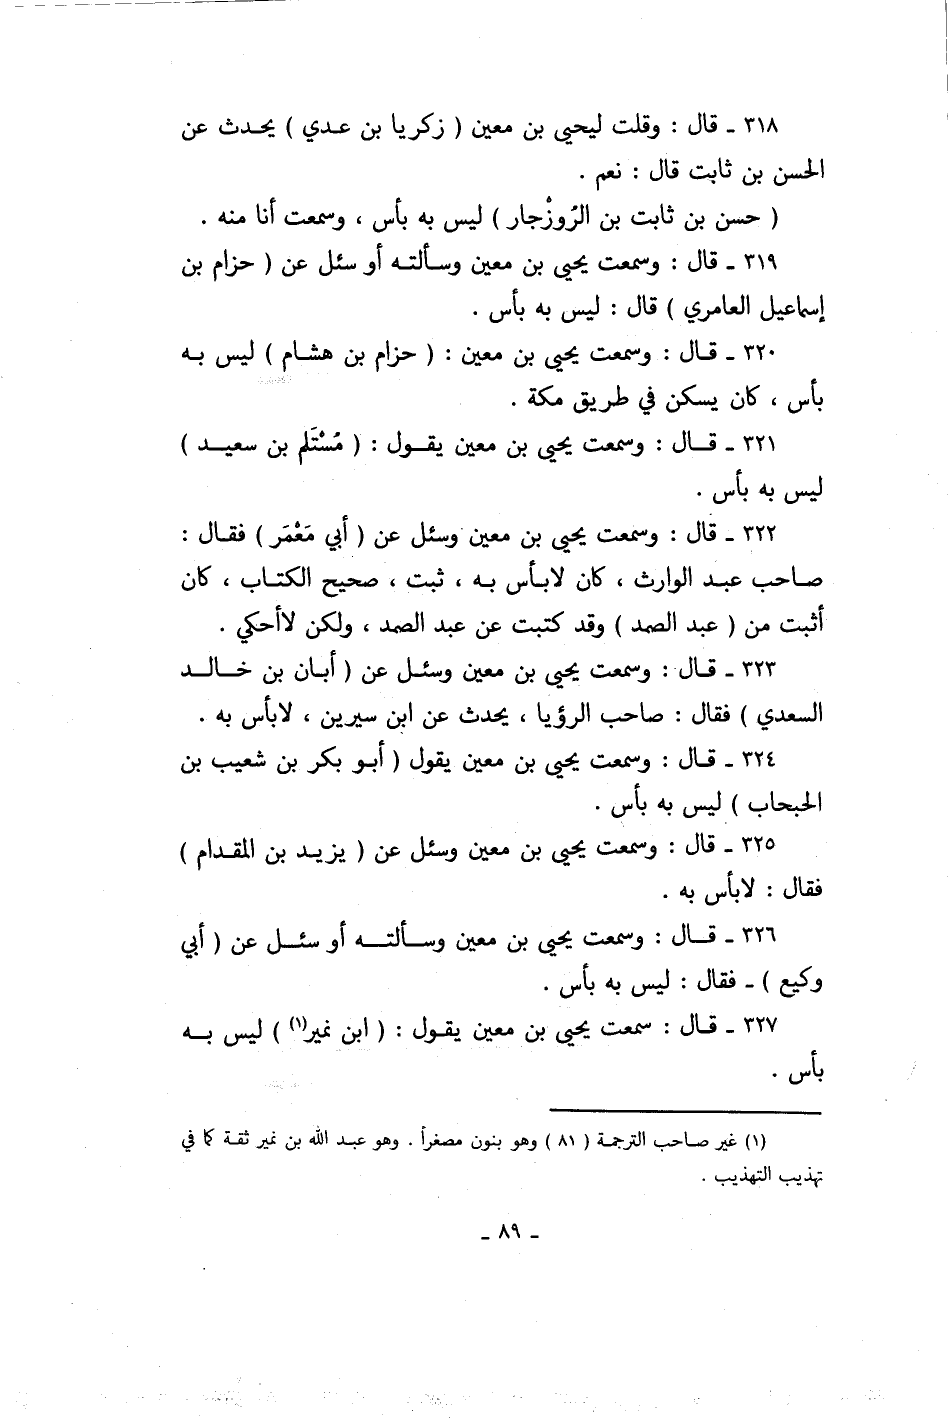 ٣١٨ ـ قال : وقلت ليحيى بن معين ( زكريا بن عدي ) يحدث عن
الحسن بن ثابت قال : نعم .
( حسن بن ثابت بن الرُوزْجار ) ليس به بأس ، وسمعت أنا منه .
٣١٩ ـ قال : وسمعت يحيى بن معين وسألته أو سئل عن ( حزام بن
إسماعيل العامري ) قال : ليس به بأس .
٣٢٠ ـ قال : وسمعت يحيى بن معين : ( حزام بن هشام ) ليس به
بأس ، كان يسكن في طريق مكة .
٣٢١ ـ قال : وسمعت يحيى بن معين يقول : ( مُسْتَلم بن سعيد )
ليس به بأس .
٣٢٢ ـ قال : وسمعت يحيى بن معين وسئل عن ( أبي مَعْمَر ) فقال :
صاحب عبد الوارث ، كان لابأس به ، ثبت ، صحيح الكتاب ، كان
أثبت من ( عبد الصمد ) وقد كتبت عن عبد الصمد ، ولكن لاأحكي .
٣٢٣ ـ قال : وسمعت يحيى بن معين وسئل عن ( أبان بن خالد
السعدي ) فقال : صاحب الرؤيا ، يحدث عن ابن سيرين ، لابأس به .
٣٢٤ ـ قال : وسمعت يحيى بن معين يقول ( أبو بكر بن شعيب بن
الحبحاب ) ليس به بأس .
٣٢٥ ـ قال : وسمعت يحيى بن معين وسئل عن ( يزيد بن المقدام )
فقال : لابأس به .
٣٢٦ ـ قال : وسمعت يحيى بن معين وسألته أو سئل عن ( أبي
وكيع ) ـ فقال : ليس به بأس .
٣٢٧ ـ قال : سمعت يحيى بن معين يقول : ( ابن نمير(١) ) ليس به
بأس .
(١) غير صاحب الترجمة ( ٨١ ) وهو بنون مصغراً . وهو عبد الله بن نمير ثقة كما في
تهذيب التهذيب .
ـ ٨٩ ـ